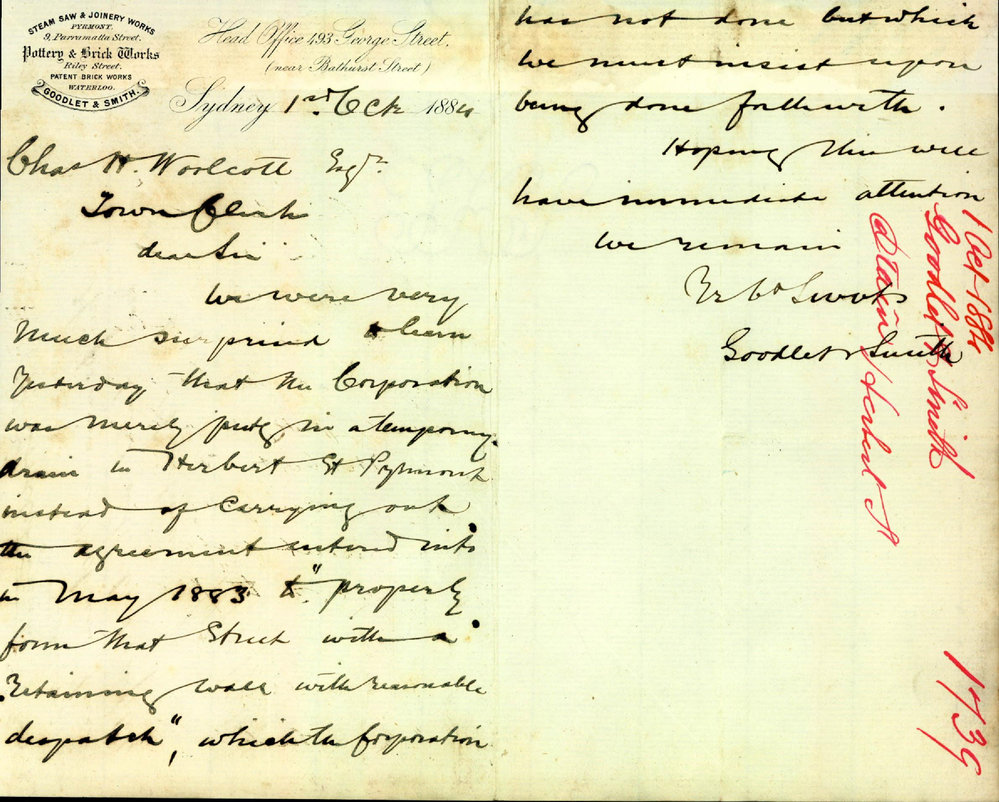 STEAM SAW & JOINERY WORKS
PYRMONT.
9, Parramatta Street.
Pottery & Brick Works
Riley Street.
PATENT BRICK WORKS
WATERLOO.
GOODLET & SMITH.
Head Office 493 George Street.
(near Bathurst Street)
Sydney 1st Octr 1884
Chas H. Woolcott Esqr
Town Clerk
dear Sir
We were very
much surprised to learn
yesterday that the Corporation
was merely putg in a temporary
drain in Herbert St Pyrmont
instead of carrying out
the agreement entered into
in May 1883 to "properly
form that Street with a
retaining wall with reasonable
despatch", which the Corporation
has not done but which
we must insist upon
being done forthwith.
Hoping this will
have immediate attention
We remain
Yr Ob Servts
Goodlet & Smith
1 Oct 1884
Goodlet & Smith
Drain Herbert St
1739